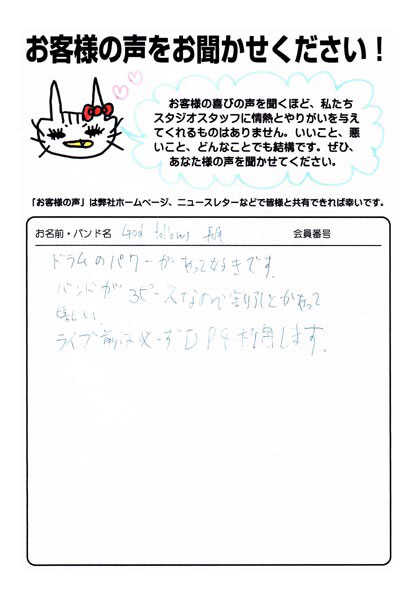 お客様の声をお聞かせください！
お客様の喜びの声を聞くほど、私たち
スタジオスタッフに情熱とやりがいを与え
てくれるものはありません。いいこと、悪
いこと、どんなことでも結構です。ぜひ、
あなた様の声を聞かせてください。
「お客様の声」は弊社ホームページ、ニュースレターなどで皆様と共有できれば幸いです。
お名前・バンド名 God follows 会員番号
ドラムのパワーがあって好きです。
バンドが3ピースなので割引とかあって
ほしい。
ライブ前は必ずDP9利用します。